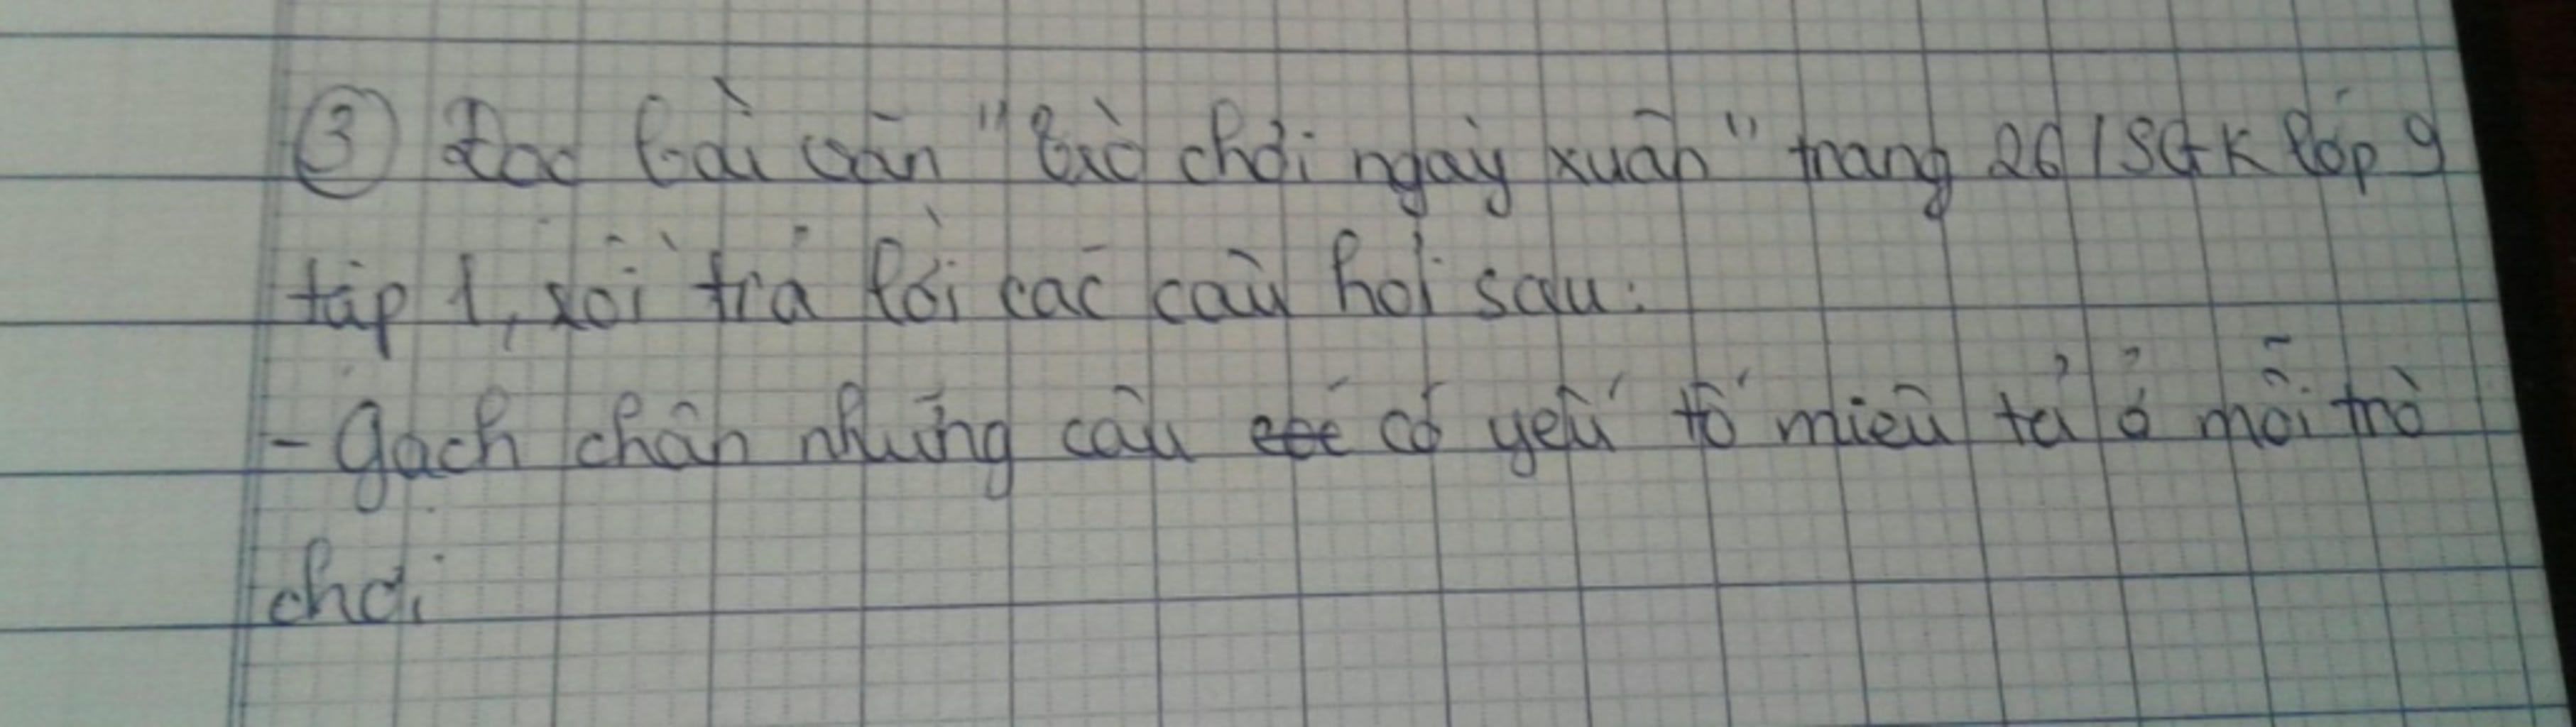 ③ Đọc bài văn "Trò chơi ngày xuân" trang 26/SGK lớp 9
tập 1, rồi trả lời các câu hỏi sau:
- Gạch chân những câu có yếu tố miêu tả ở mỗi trò
chơi